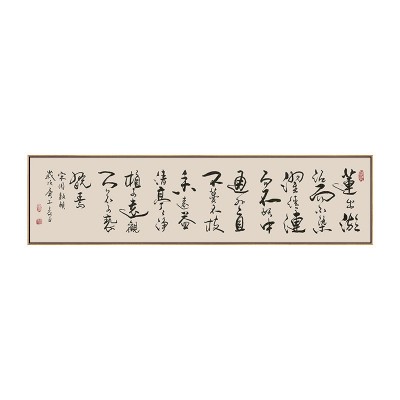 蓮出淤
泥而不染
濯清漣
而不妖中
通外直
不蔓不枝
香遠益
清亭亭淨
植可遠觀
而不可褻
翫焉
宋周敦頤